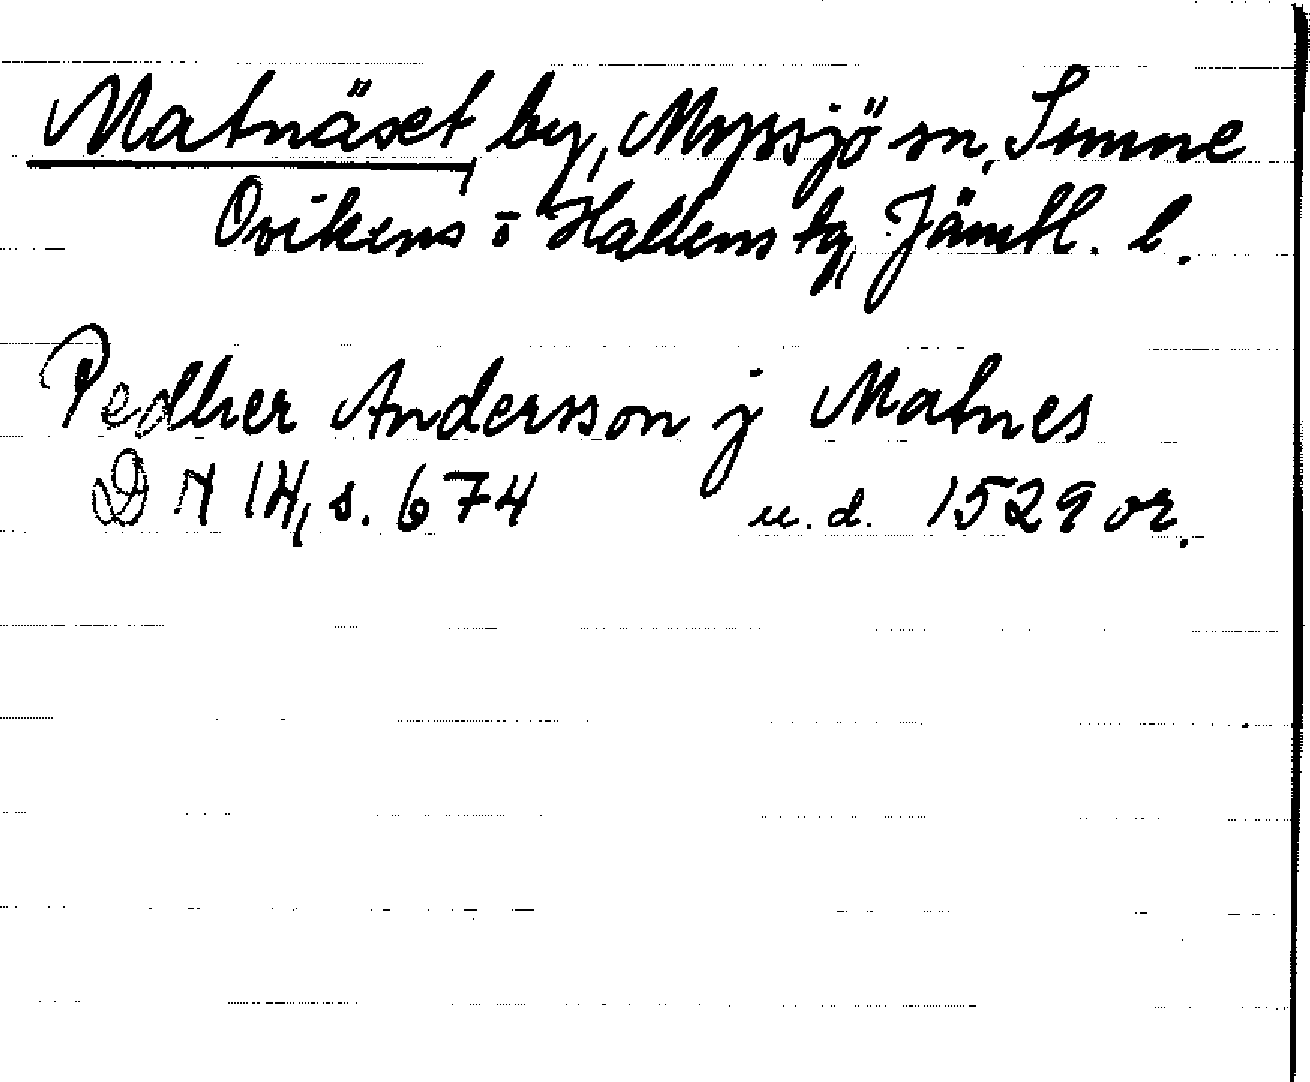 Matnäset, by, Myssjö sn, Sunne
Ovikens o Hallens tg, Jämtl. l.
Pedher Andersson j Matnes
DN 14, s. 674 u.d. 1529 or.